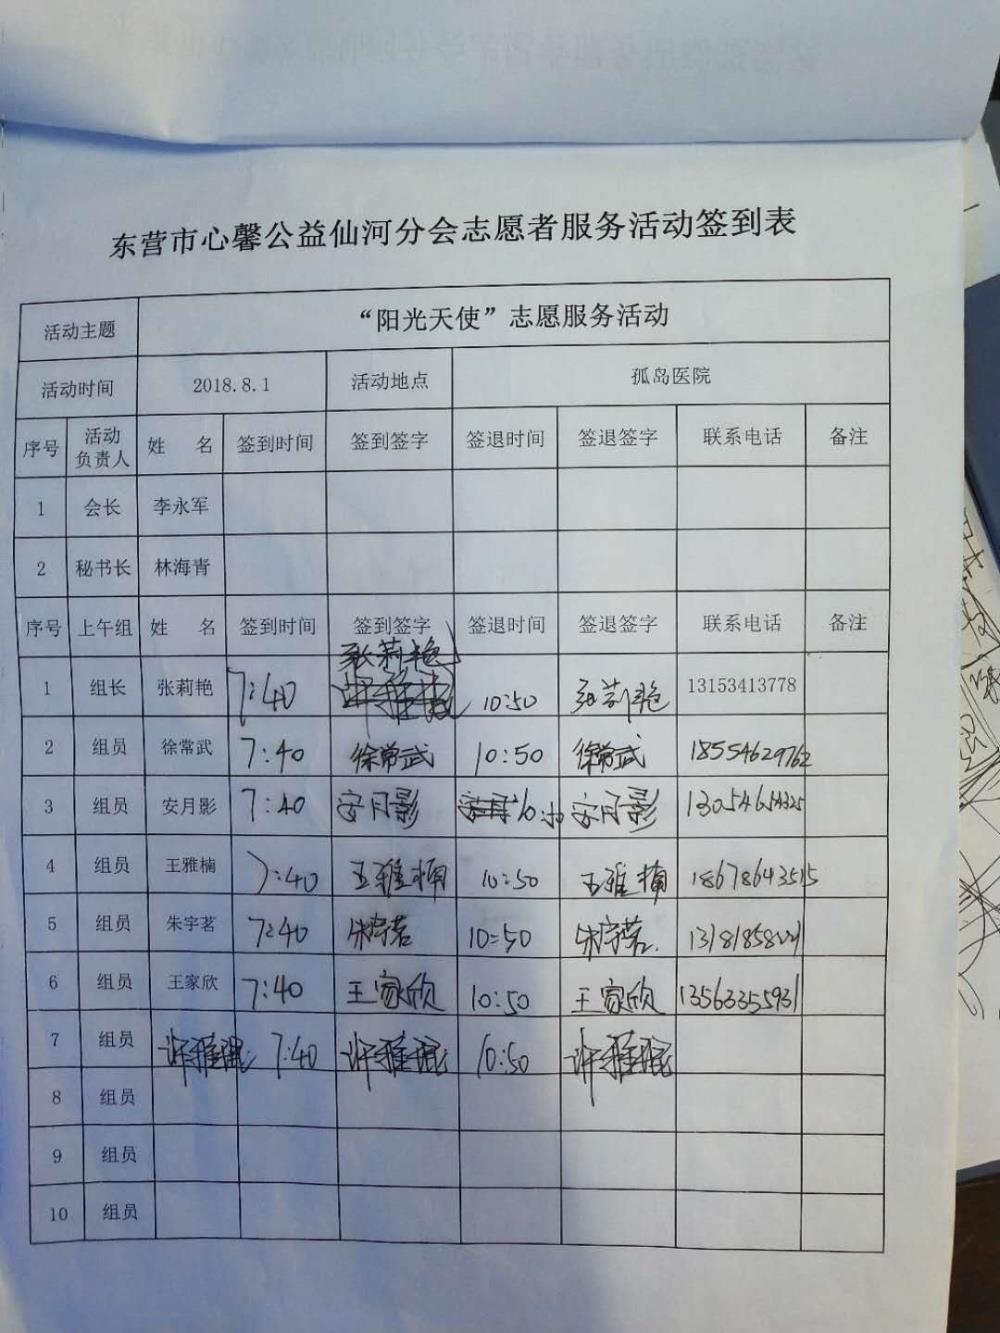 东营市心馨公益仙河分会志愿者服务活动签到表
活动主题 “阳光天使”志愿服务活动
活动时间 2018.8.1 活动地点 孤岛医院
序号 活动负责人 姓 名 签到时间 签到签字 签退时间 签退签字 联系电话 备注
1 会长 李永军
2 秘书长 林海青
序号 上午组 姓 名 签到时间 签到签字 签退时间 签退签字 联系电话 备注
1 组长 张莉艳 7:40 张莉艳 10:50 张莉艳 13153413778
2 组员 徐常武 7:40 徐常武 10:50 徐常武 18554629762
3 组员 安月影 7:40 安月影 安月影
4 组员 王雅楠 7:40 王雅楠 10:50 王雅楠 18678643515
5 组员 朱宇茗 7:40 朱宇茗 10:50 朱宇茗
6 组员 王家欣 7:40 王家欣 10:50 王家欣 13563355931
7 组员 许雅琨 7:40 许雅琨 10:50 许雅琨
8 组员
9 组员
10 组员